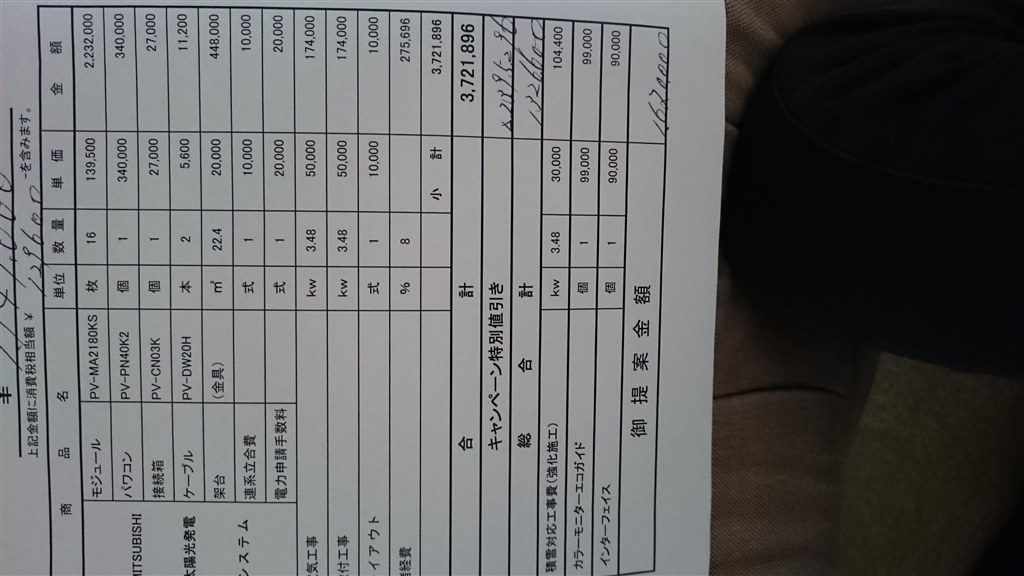 上記金額に消費税相当額 ¥ 129600 -を含みます。
商 品 名 単位 数 量 単 価 金 額
モジュール PV-MA2180KS 枚 16 139,500 2,232,000
MITSUBISHI パワコン PV-PN40K2 個 1 340,000 340,000
接続箱 PV-CN03K 個 1 27,000 27,000
太陽光発電 ケーブル PV-DW20H 本 2 5,600 11,200
システム 架台 (金具) ㎡ 22.4 20,000 448,000
連系立合費 式 1 10,000 10,000
電力申請手数料 式 1 20,000 20,000
気工事 kw 3.48 50,000 174,000
付工事 kw 3.48 50,000 174,000
イアウト 式 1 10,000 10,000
経費 % 8 275,696
小 計 3,721,896
合 計 3,721,896
キャンペーン特別値引き
総 合 計
積雪対応工事費(強化施工) kw 3.48 30,000 104,400
カラーモニターエコガイド 個 1 99,000 99,000
インターフェイス 個 1 90,000 90,000
御 提 案 金 額 1620,000